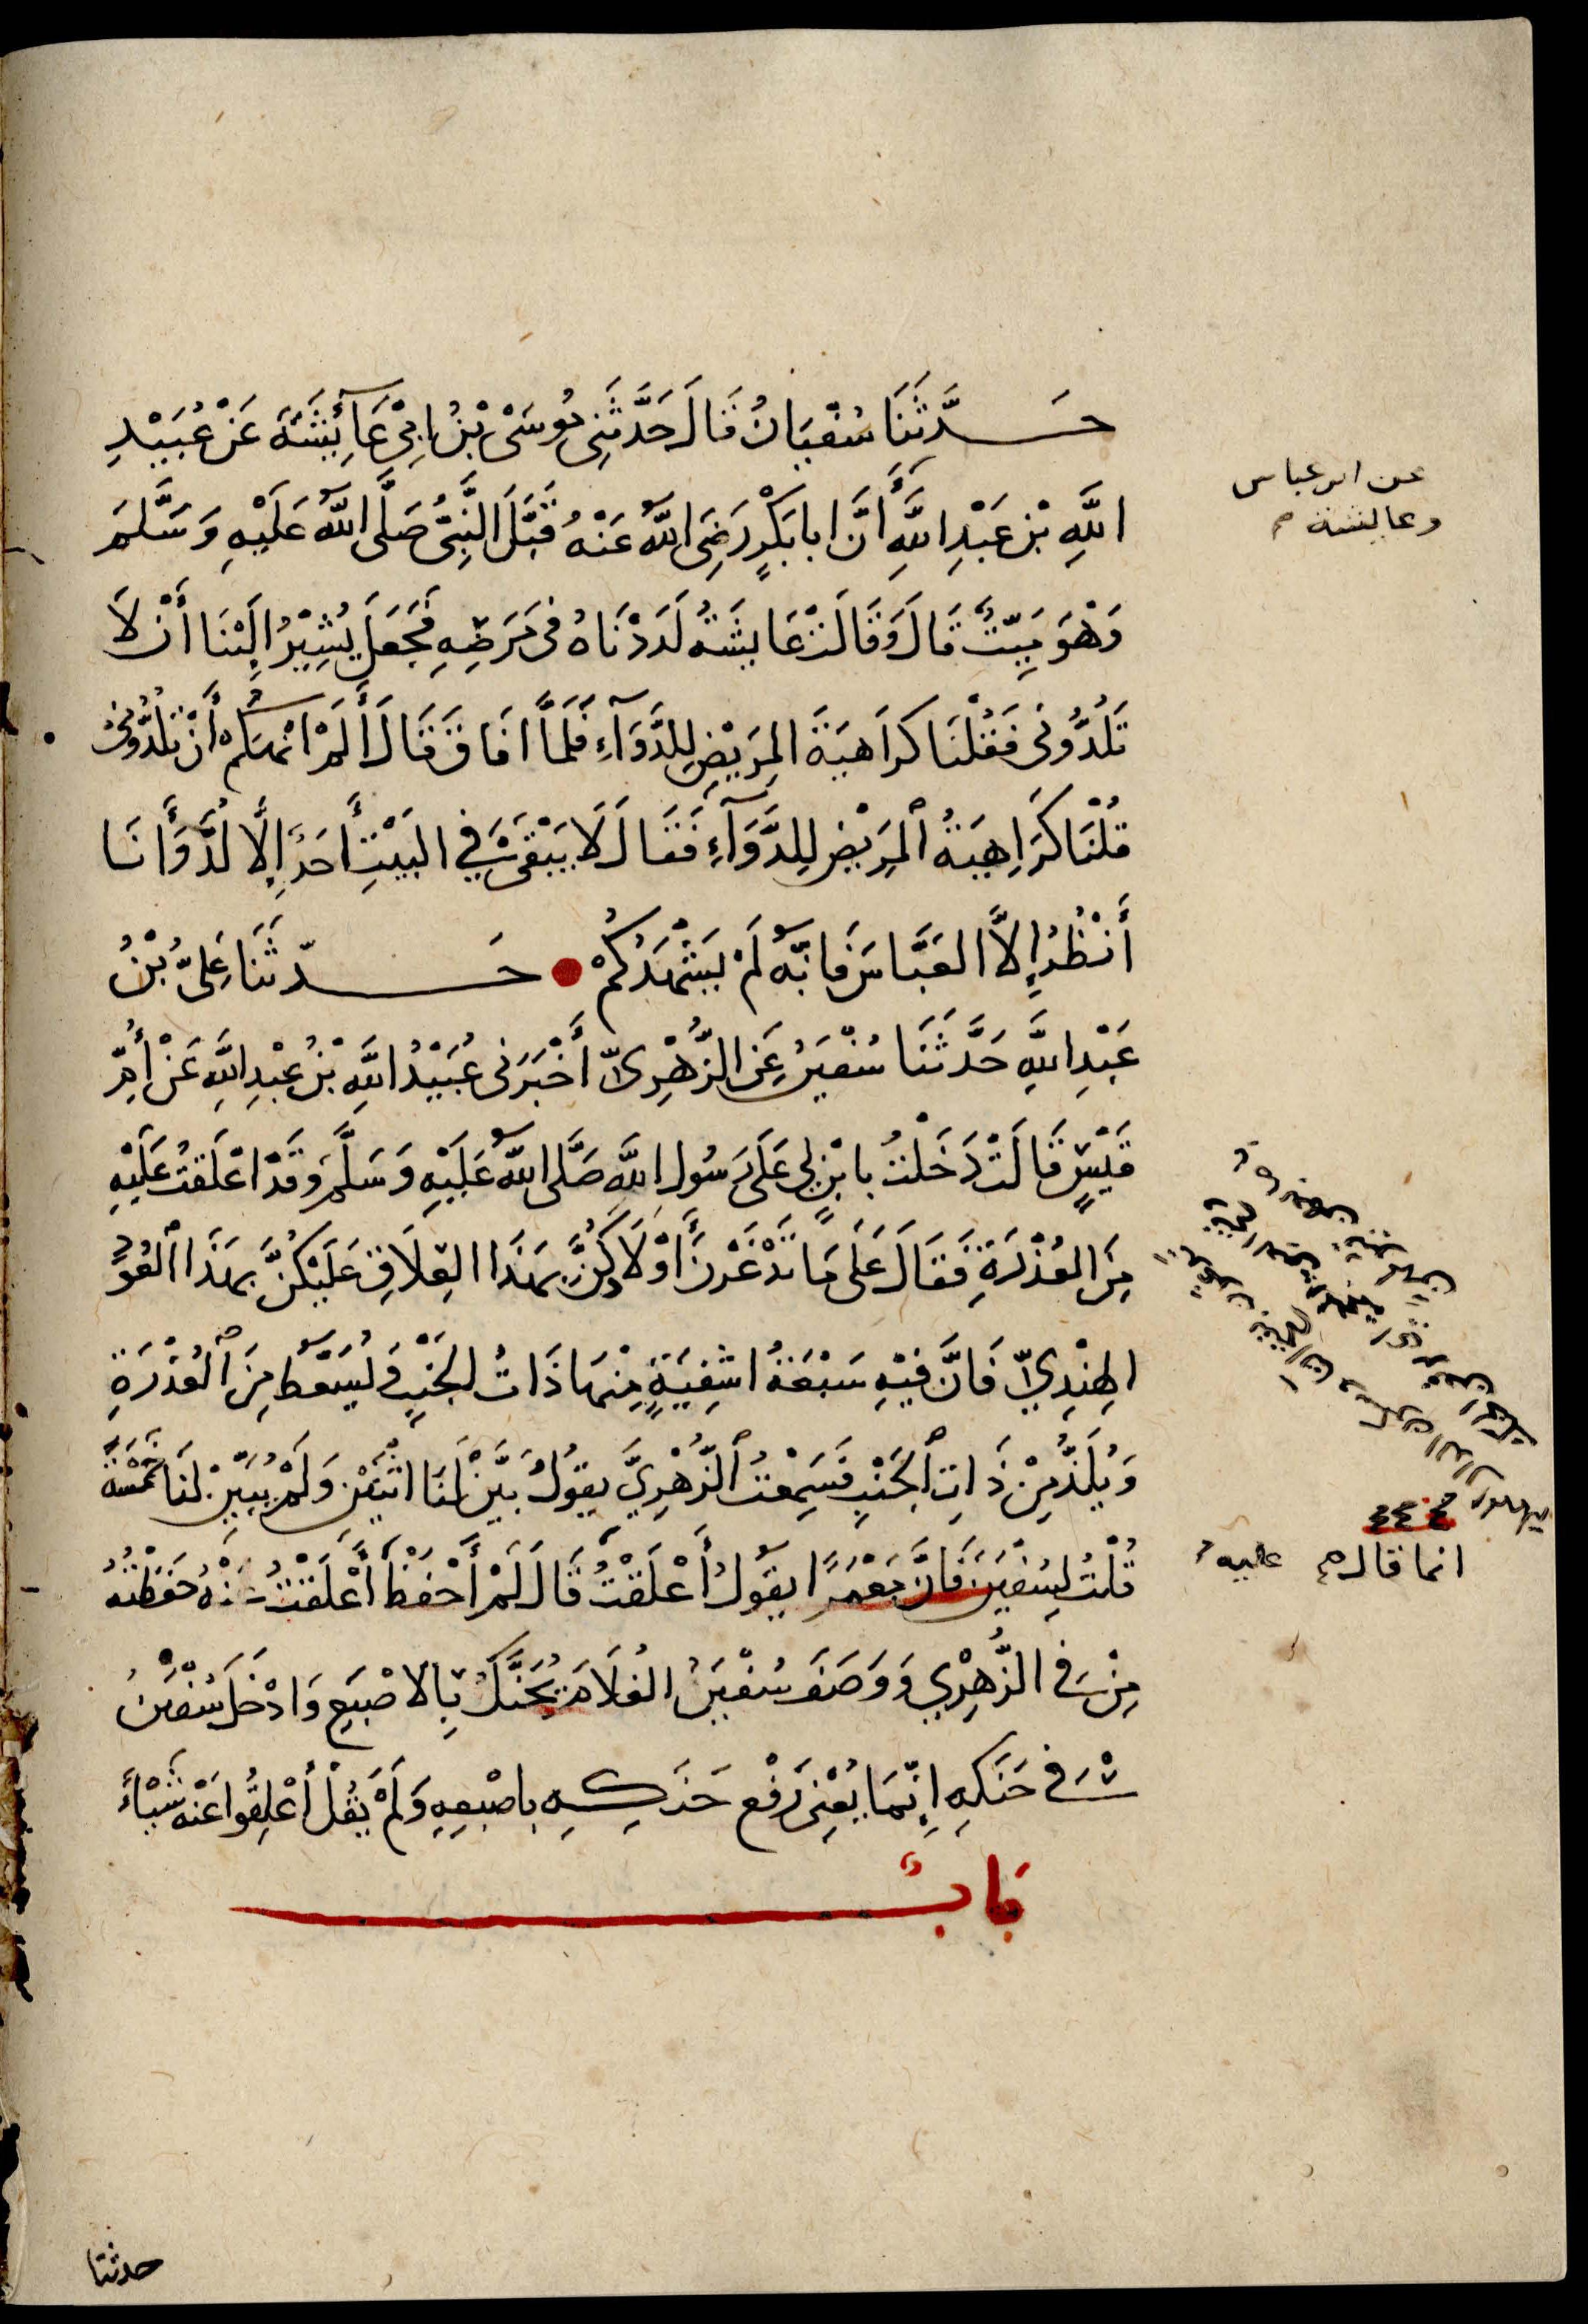 حَدَّثَنَا سُفْيَانُ قَالَ حَدَّثَنِى مُوسَىْ بْنُ ابِىْ عَآئِشَةَ عَنْ عُبَيْدِ
اللَّهِ بْنِ عَبْدِ اللَّهِ أَنَّ ابا بَكْرٍ رَضِىَ اللَّهُ عَنْهُ قَبَّلَ النَّبِىَّ صَلَّى اللَّهُ عَلَيْهِ وَسَلَّمَ
وَهْوَ مَيِّتٌ قَالَ وَقَالَتْ عَايشَةُ لَدَدْنَاهُ فى مَرَضِهِ فَجَعَلَ يُشِيْرُ اِلَيْنَا أَنْ لَا
تَلُدُّونى فَقُلْنَا كراَهيَةَ المِرَيْضِ لِلدَّوَآءِ فَلَمَّا افَاقَ قَالَ أَلَمْ انْهَكُمْ أَنْ تَلُدُّونِىْ
قُلْنَا كَرَاِهِيَةُ المَرِيْضِ لِلدَّوَآءِ فَقَالَ لَا يَبْقَىْ فِي البَيْتِ أَحَدٌ إِلَّا لُدَّ وَأَنَا
أَنْظُرُ إِلاَّ العَبَّاسَ فَانَّهُ لَمْ يَشْهَدْكُمْ ● حَدّثَنَا عَلِىُّ بْنُ
عَبْدِ اللَّهِ حَدَّثَنَا سُفْيَنُ عَنِ الزُّهْرِىّ أَخْبَرَنى عُبَيْدُ اللَّهِ بْنُ عبْدِ اللَّهِ عَنْ أُمِّ
قَيْسٍ قَالَتْ دَخَلْتُ بابْنٍ لِى عَلَى رَسُولِ اللَّهِ صَلَّى اللَّهُ عَلَيْهِ وَسَلَّمَ وَقَدْ اعْلَقْتُ عَلَيْهِ
مِنَ العُذْرَةِ فَقَالَ عَلَى مَا تَدْغَرْنَ أَوْلَادَكُنَّ بِهَذَا العِلَاقِ عَلَيْكُنَّ بِهَذَا العُوْدِ
الهِنْدِيِّ فَانَّ فيْهِ سَبْعَةُ اشْفِيَةٍ مِنْهَا ذَاتُ الجَنْبِ يُسْعَطُ مِنَ العُذْرَةِ
وَيُلَدُّ مِنْ ذَاتِ الجَنْبِ فَسَمِعْتُ الزُّهْرِيَّ يقوُلُ بَيَّنَ لَنَا اثْنَيْنِ وَلَمْ يُبَيِّنْ لَنَا خَمْسَةً
قُلْتُ لِسُفْيَنَ فَانَّ مَعْمَرًا يقوُلُ أَعْلَقْتُ قَالَ لَمْ أَحْفَظْ أَعْلَقْتُ عَنْهُ حَفَظْتُهُ
مِنْ فى الزُّهْرِي وَوَصَفَ سُفْيَنُ الغُلَامَ يُحَنَّكُ بِالاصْبَعِ وَادْخَلَ سُفْيَنُ
فى حَنَكِهِ إِنّمَا يَعْنِى رَفْع حَنَكِهِ باصْبعِهِ وَلَمْ يَقُلْ أَعْلِقُوا عَنْهُ شَيْأً
بَابٌ
عن ابن عباس
وعايشة
انما قال عليه
حدثنا